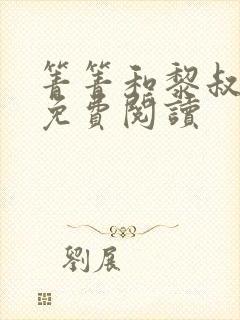 箐箐和黎叔
免費閱讀
劉展